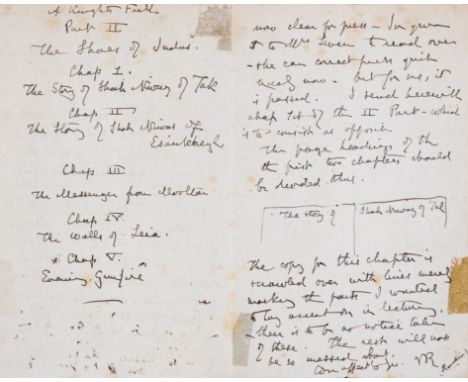 A Knight's Faith
Part II
The Shores of Indus.
Chap I.
The Story of Shah Niwaz of Tak
Chap II
The Story of Shah Niwaz of
Esaukhayl
Chap III
The Messenger from Mooltan
Chap IV
The Walls of Leia.
Chap V.
Evening Gunfire
now clear for press - I've given
it to Mrs to read over
- she can correct press quite
nicely now - but for us, it
is passed. I send herewith
chap 1st of the II Part - which
is to consist as opposite
The page headings of the
the first two chapters should
be divided thus.
The Story of
Shah Niwaz of Tak
The copy for this chapter is
scrawled over with lines merely
marking the parts I wanted
to lay accent on in lecturing.
- there is to be no notice taken
of these. The rest will not
be so messed about.
JR